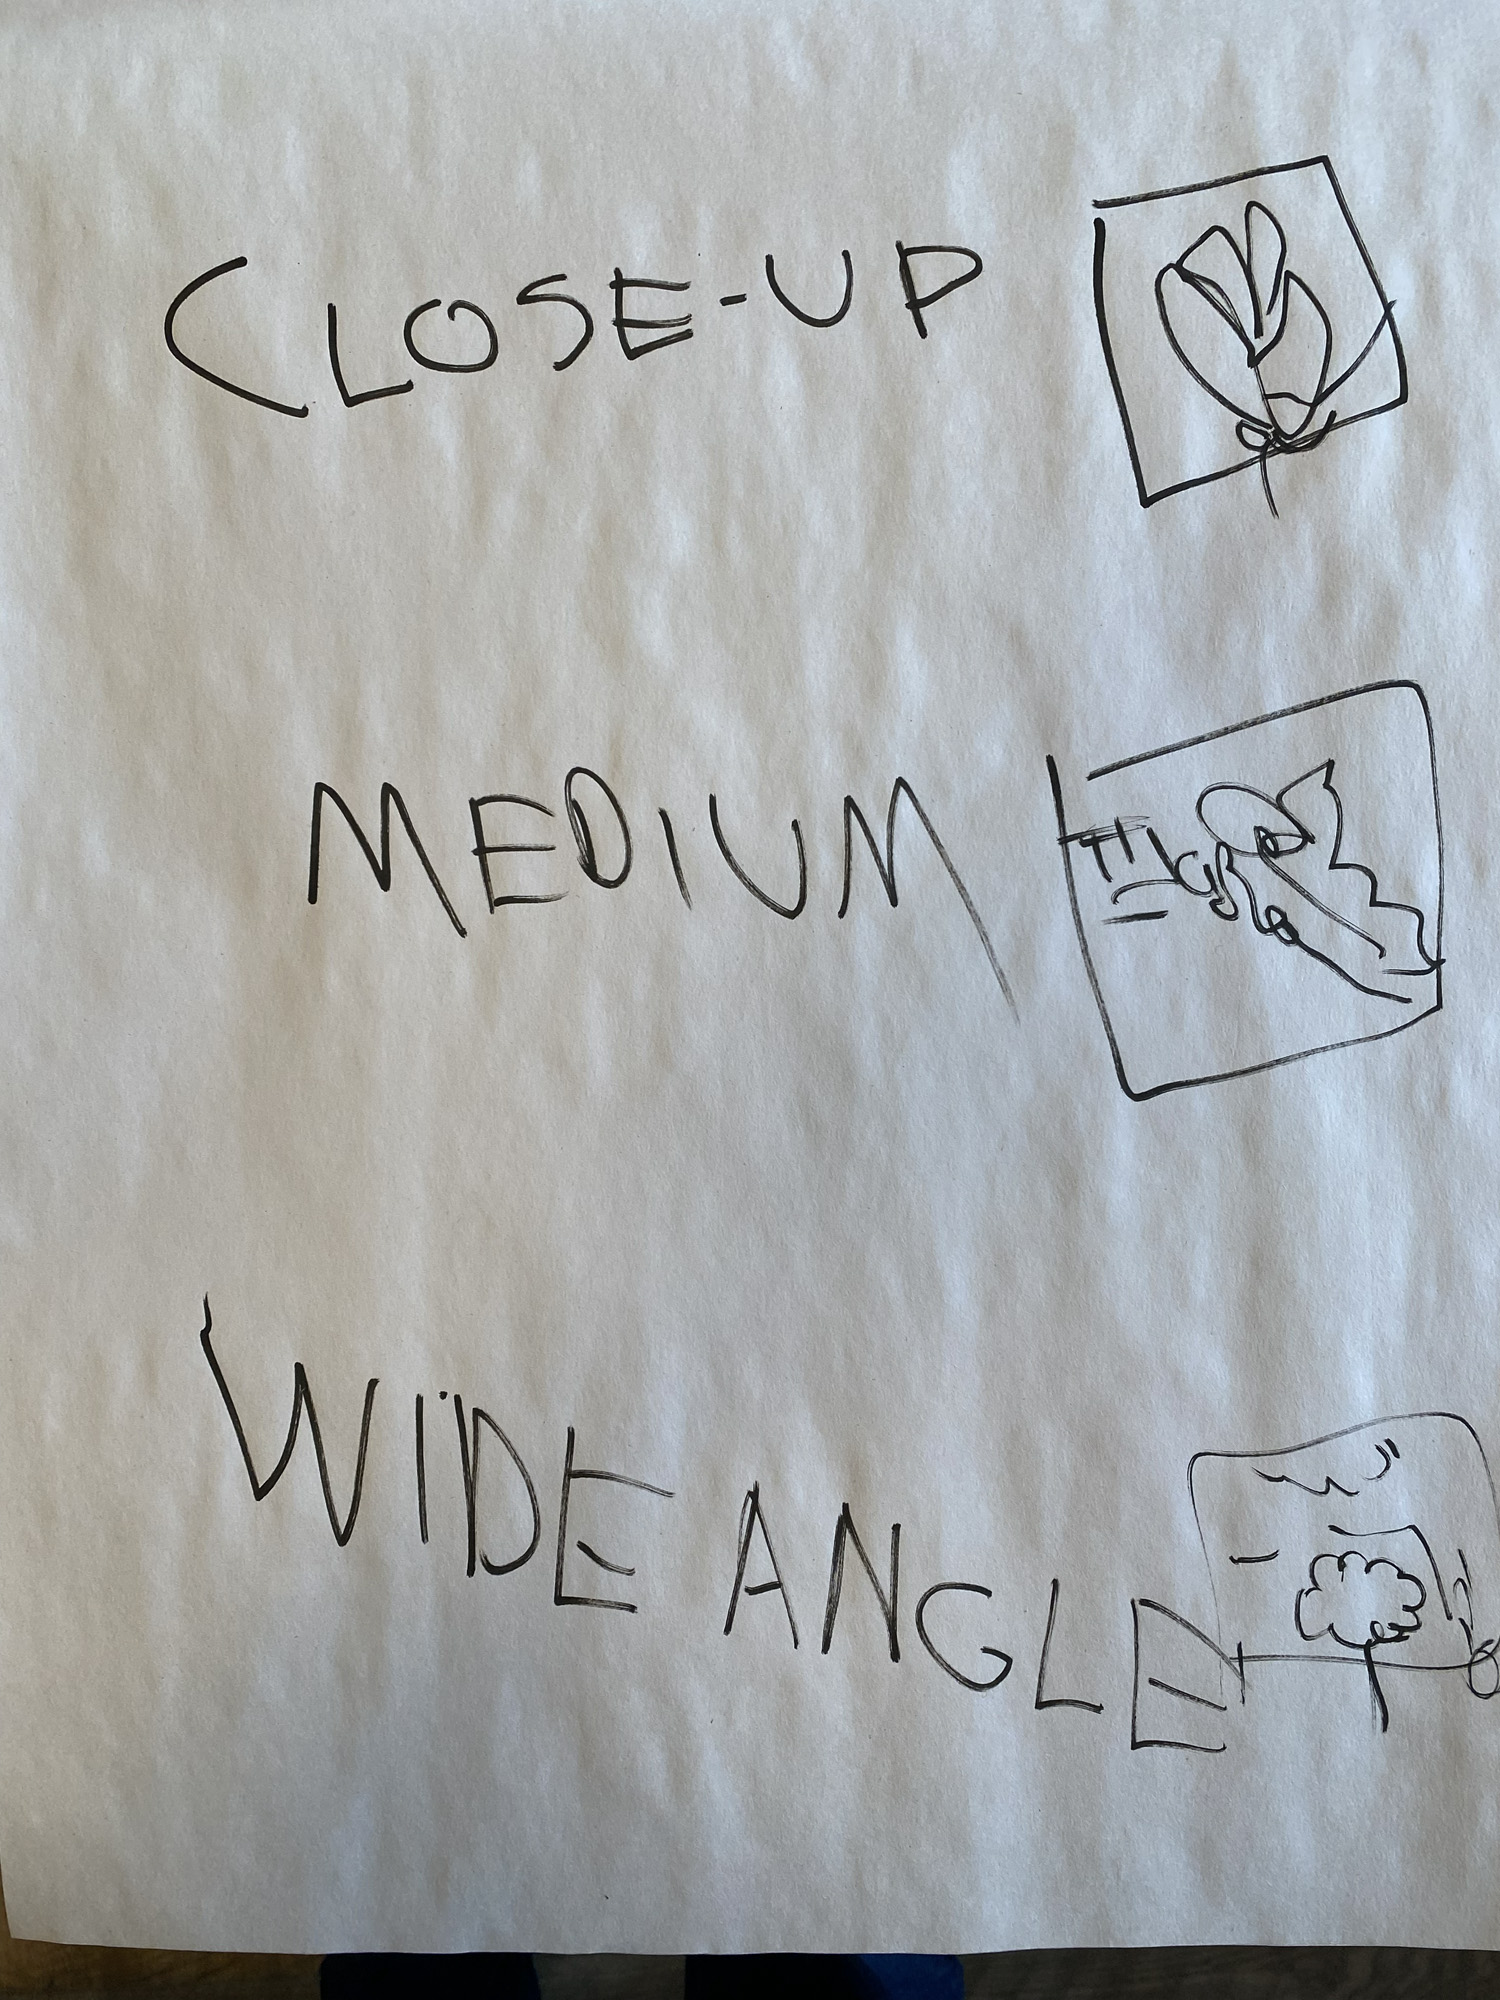 CLOSE-UP
MEDIUM
WIDE ANGLE